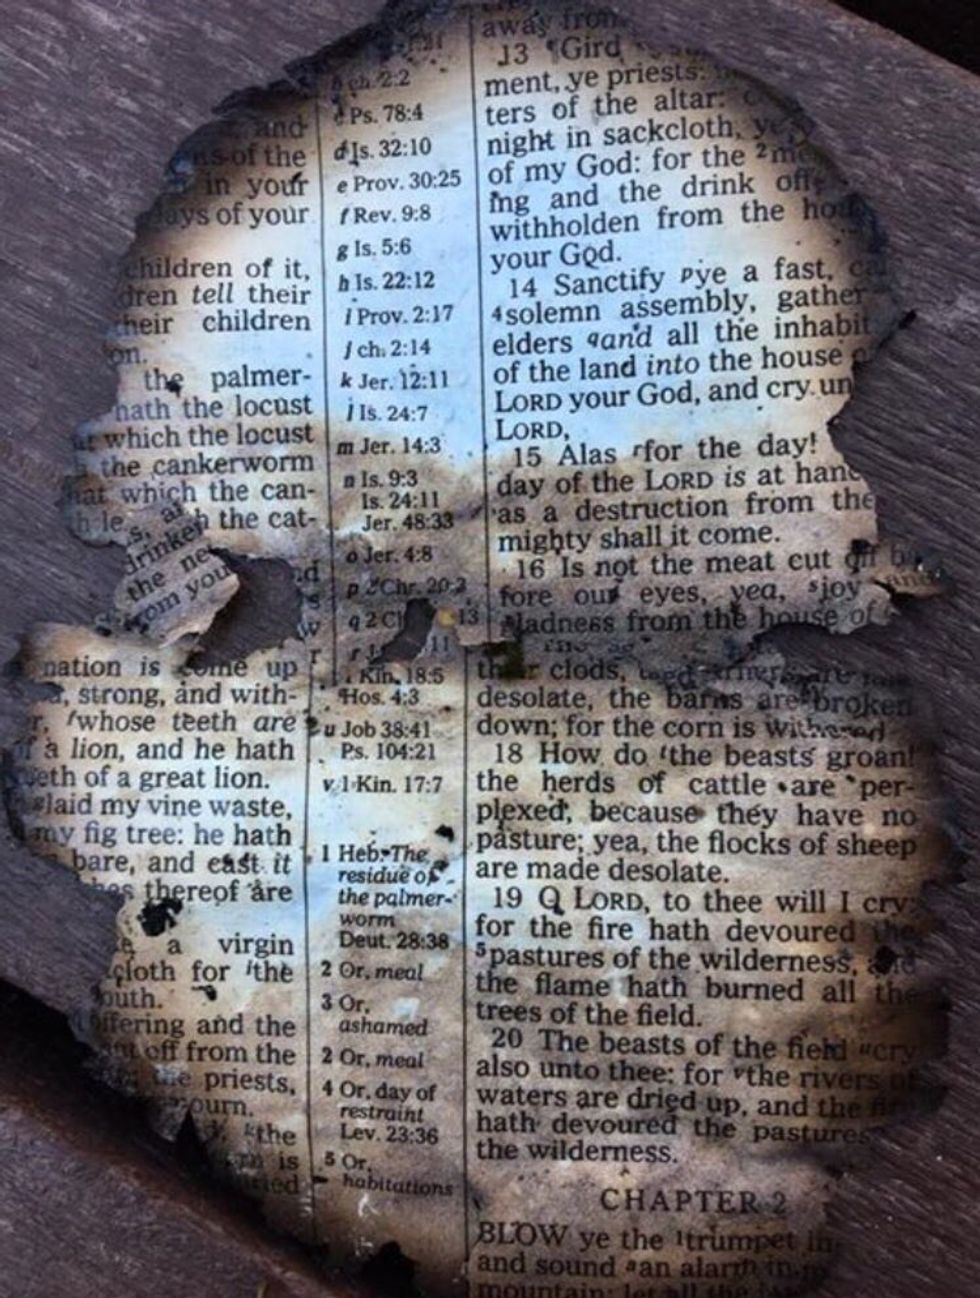 and
of the
in your
of your
children of it,
tell their
their children
on.
the palmer-
hath the locust
which the locust
the cankerworm
which the can-
the cat-
drinker
the ne
rom you
nation is come up
strong, and with-
r, whose teeth are
a lion, and he hath
teeth of a great lion.
laid my vine waste,
my fig tree: he hath
bare, and cast it
thereof are
a virgin
cloth for the
outh.
ffering and the
off from the
the priests,
ourn.
the
is
ch. 2:2
Ps. 78:4
d Is. 32:10
e Prov. 30:25
f Rev. 9:8
g Is. 5:6
h Is. 22:12
i Prov. 2:17
j ch. 2:14
k Jer. 12:11
l Is. 24:7
m Jer. 14:3
n Is. 9:3
Is. 24:11
Jer. 48:33
o Jer. 4:8
p 2 Chr. 20:3
q 2 C 13
r 11
Kin. 18:5
Hos. 4:3
u Job 38:41
Ps. 104:21
v 1 Kin. 17:7
1 Heb. The
residue of
the palmer-
worm
Deut. 28:38
2 Or, meal
3 Or,
ashamed
2 Or, meal
4 Or, day of
restraint
Lev. 23:36
5 Or,
habitations
away from
13 ¶Gird
ment, ye priests:
ters of the altar:
night in sackcloth, ye
of my God: for the 2 me
ing and the drink off
withholden from the hou
your God.
14 Sanctify p ye a fast, ca
4 solemn assembly, gather
elders q and all the inhabit
of the land into the house
LORD your God, and cry un
LORD,
15 Alas r for the day!
day of the LORD is at hand
as a destruction from the
mighty shall it come.
16 Is not the meat cut off be
fore our eyes, yea, s joy and
gladness from the house of
their clods,
desolate, the barns are broken
down; for the corn is withered
18 How do t the beasts groan!
the herds of cattle are per-
plexed, because they have no
pasture; yea, the flocks of sheep
are made desolate.
19 O LORD, to thee will I cry:
for the fire hath devoured the
5 pastures of the wilderness, and
the flame hath burned all the
trees of the field.
20 The beasts of the field u cry
also unto thee: for v the rivers of
waters are dried up, and the fi
hath devoured the pastures
the wilderness.
CHAPTER 2
BLOW ye the 1 trumpet in
and sound a an alarm in
mountain: let all the